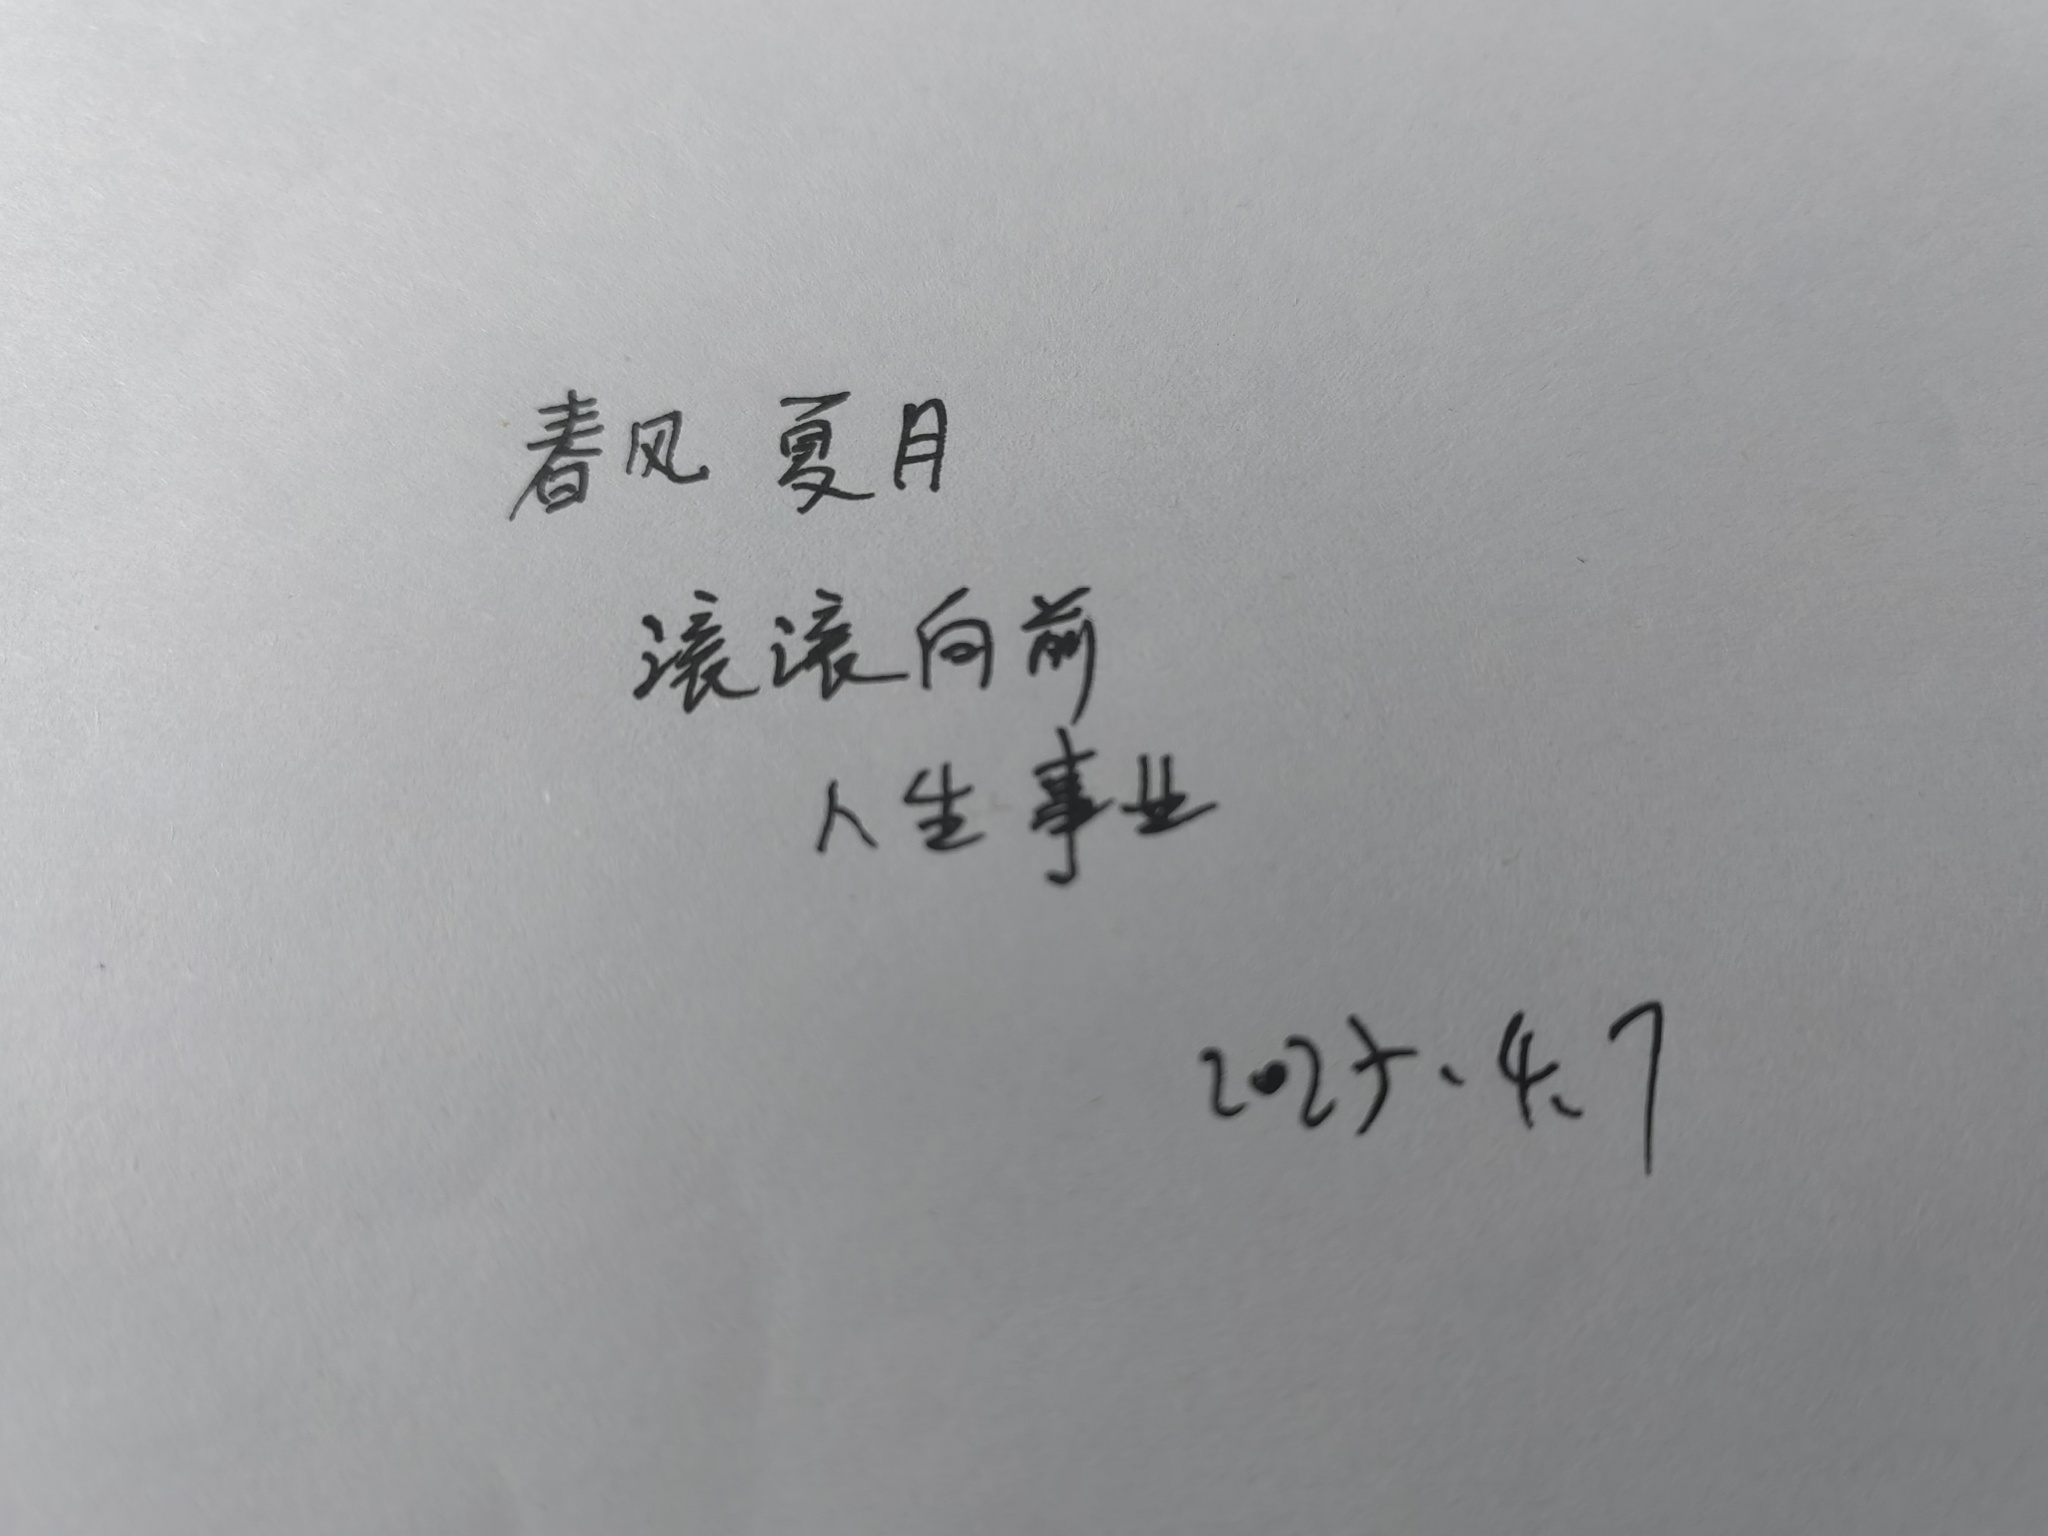 春风 夏月
滚滚向前
人生事业
2025.4.7